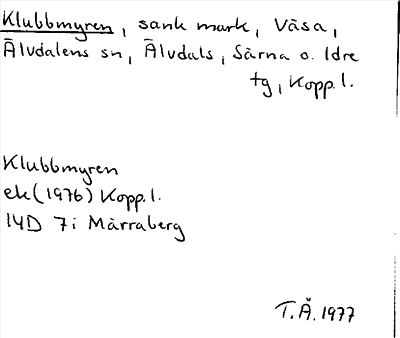 Klubbmyren, sank mark, Våsa,
Älvdalens sn, Älvdals, Särna o. Idre
tg, Kopp. l.
Klubbmyren
ek (1976) Kopp. l.
14D 7i Märraberg
T.Å. 1977